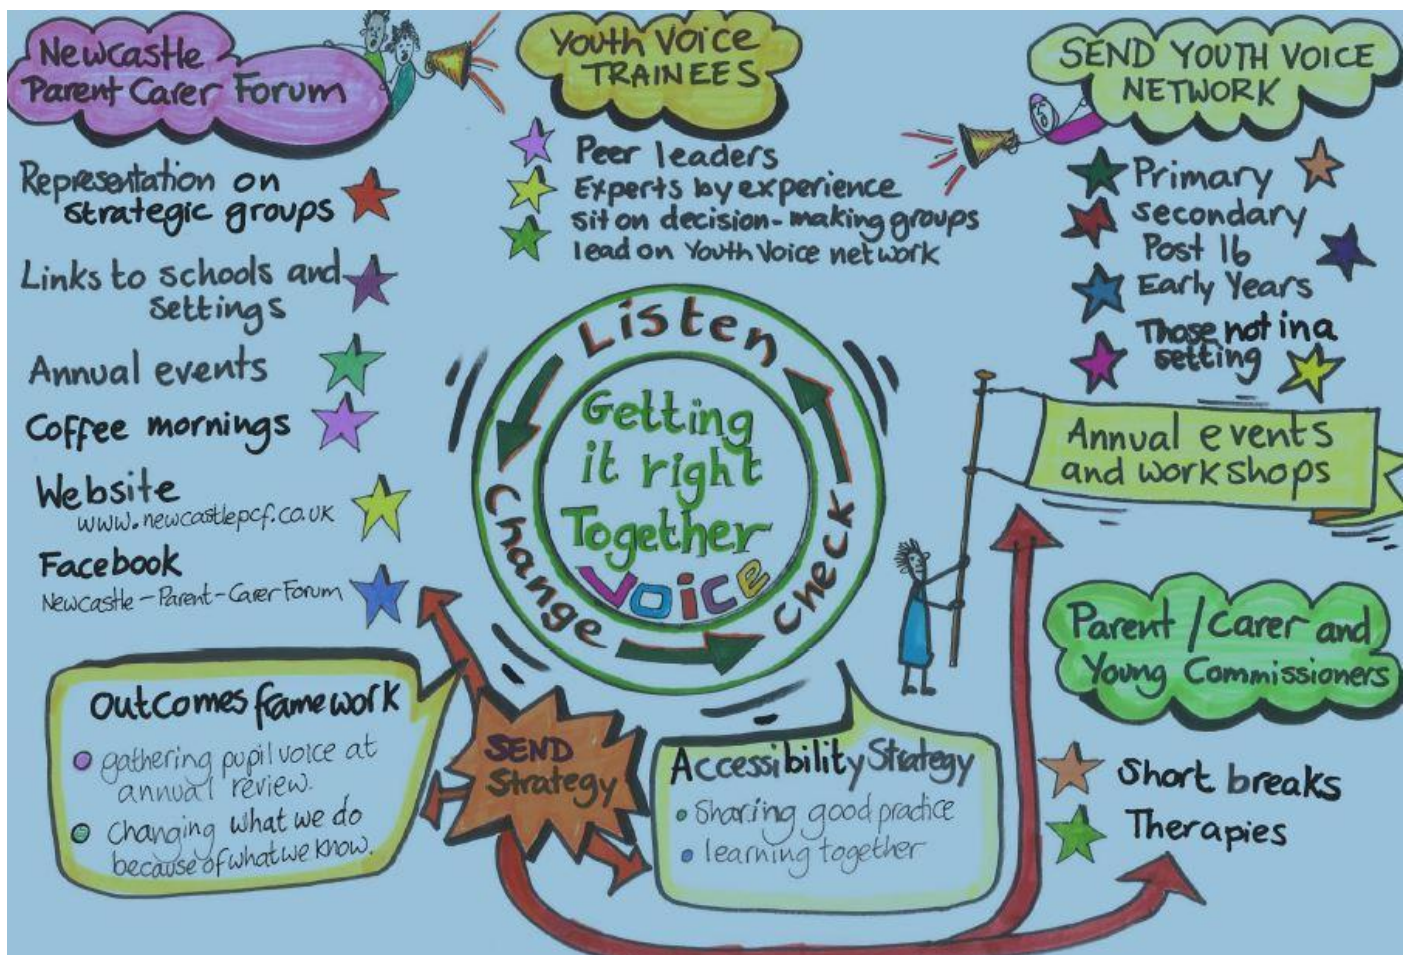 Newcastle
Parent Carer Forum
Representation on
strategic groups
Links to schools and
settings
Annual events
Coffee mornings
Website
www.newcastlepcf.co.uk
Facebook
Newcastle-Parent-Carer Forum
Youth Voice
TRAINEES
Peer leaders
Experts by experience
sit on decision-making groups
lead on Youth Voice network
SEND YOUTH VOICE
NETWORK
Primary
secondary
Post 16
Early Years
Those not in a
setting
Annual events
and workshops
Listen
Change
Check
Getting
it right
Together
VOICE
Parent / Carer and
Young Commissioners
Short breaks
Therapies
Outcomes framework
gathering pupil voice at
annual review.
Changing what we do
because of what we know.
SEND
Strategy
Accessibility Strategy
Sharing good practice
learning together